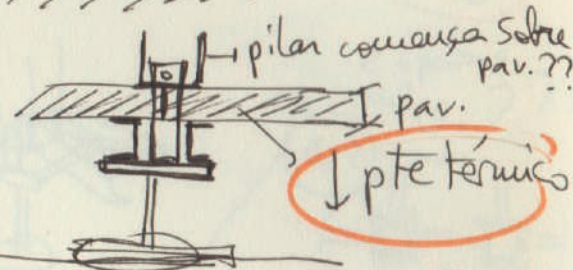 pilar começa sobre
pav.??
pav.
↓ pte térmico